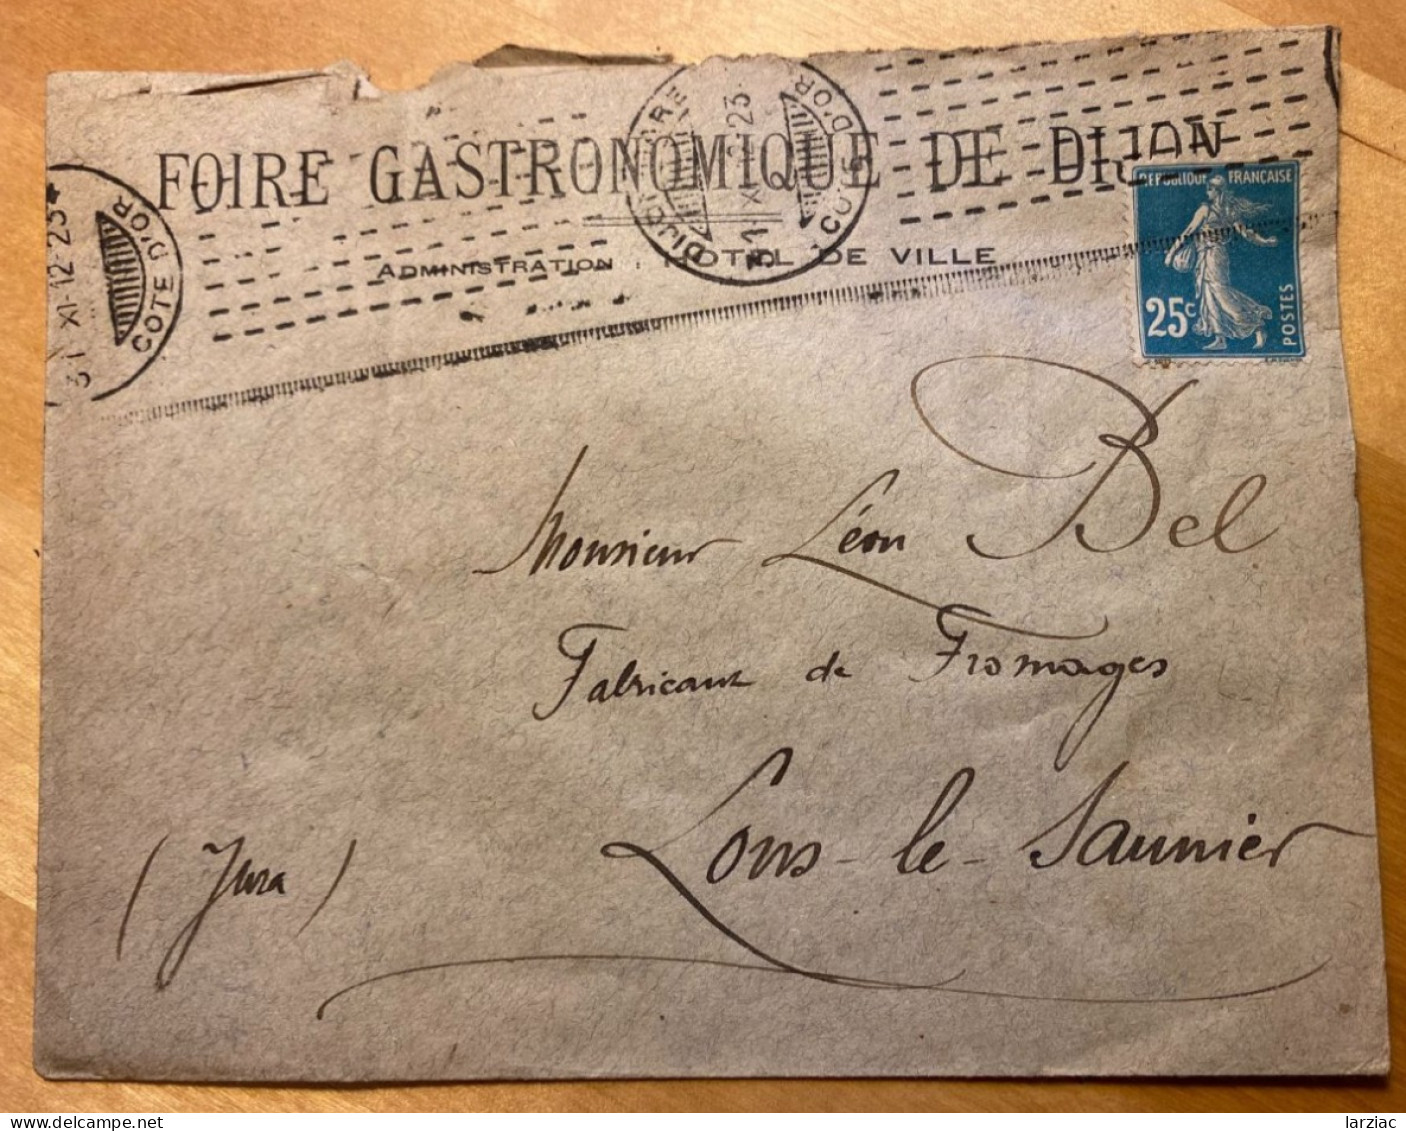 FOIRE GASTRONOMIQUE DE DIJON
ADMINISTRATION : HOTEL DE VILLE
DIJON GARE
COTE D'OR
COTE D'OR
XI-12·23
REPUBLIQUE FRANÇAISE
25c
POSTES
Monsieur Léon Bel
Fabricant de Fromages
Lons-le-Saunier
(Jura)
larziac